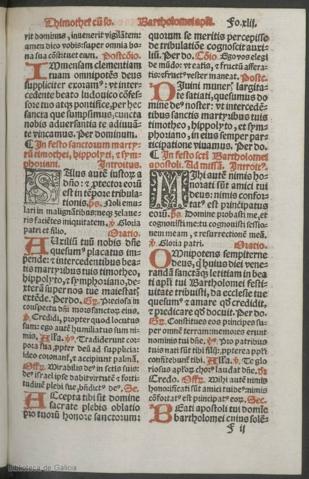 Thimothei cũ so. Bartholomei apli. Fo.xlij.
rit dominus, inuenerit vigilãtem:
amen dico vobis: super omnia bo-
na sua cõstituet eum. Postcõio.
clementiam
tuam omnipotẽs deus
suppliciter exoram⁹: vt inter-
cedente beato ludouico cõfes-
sore tuo atqz pontifice, per hec
sancta que sumpsimus, cuncta
nobis aduersantia te adiuuã-
te vincamus. Per dominum.
In festo sanctorum marty-
rũ timothei, hippolyti, et sym-
phoriani. Introitus.
Salus autẽ iustorũ a
dño: et protector eoꝝ
est in tẽpore tribula-
tionis. ps. Noli emu-
lari in malignãtibus: neqz zelaue-
ris faciẽtes iniquitatem. Gloria
patri et filio. Oratio.
Auxiliũ tuũ nobis dñe
quesum⁹ placatus im-
pende: et intercedentibus bea-
tis martyribus tuis timotheo,
hippolyto, et symphoriano, de-
xterã super nos tue maiestatꝭ
extẽde. Per do. Preciosa in
conspectu dñi mors sanctorũ eius.
Credidi, propter quod locutus
sum: ego autẽ humiliatus sum ni-
mis. Tradiderunt cor-
pora sua propter deũ ad supplicia:
ideo coronant̃, et accipiunt palmã.
Offe. Mirabilis deus in sctis suis:
deus israel ipse dabit virtutẽ et forti-
tudinẽ plebi sue, bñdict⁹ de⁹. Sec.
Accepta tibi sit domine
sacrate plebis oblatio
pro tuorũ honore sanctorum:
quorum se meritis percepisse
de tribulatiõe cognoscit auxi-
liũ. Per do. Cõio. Ego vos elegi
de mũdo: vt eatis, et fructũ affera-
tis: et fruct⁹ vester maneat. Postc.
Diuini muneris largita-
te satiati, quesumus do-
mine deus noster: vt interceden-
tibus sanctis martyribus tuis
timotheo, hippolyto, et sym-
phoriano, in eius semper pars
ticipatione viuamus. Per do.
In festo scti Bartholomei
apostoli. Ad missã. Introit⁹.
Mihi autẽ nimis ho-
norati sũt amici tui
deus: nimis confor-
tat⁹ est principatus
eoꝝ. ps. Domine probasti me, et
cognouisti me: tu cognouisti sessio-
nem meam, et resurrectionẽ meã.
Gloria patri. Oratio.
Omnipotens sempiterne
deus, qui huius diei vene-
randã sanctãqz letitiam in bea-
ti apli tui Bartholomei festi-
uitate tribuisti, da ecclesie tue
quesum⁹ et amare qd̃ credidit,
et predicare qd̃ docuit. Per do.
Constitues eos principes su-
per omnẽ terram: memores erunt
nominis tui dñe. Pro patribus
tuis nati sũt tibi filij: propterea popłi
confitebunt̃ tibi. Alla. Te glo-
riosus aploꝝ chor⁹ laudat dñe.
Credo. Offe. Mihi autẽ nimis
honorificati sũt amici tui de⁹: nimis
cõfortat⁹ est principat⁹ eoꝝ. Sec.
Beati apostoli tui domine
bartholomei cuius solẽ⁹
f ij
Biblioteca de Galicia